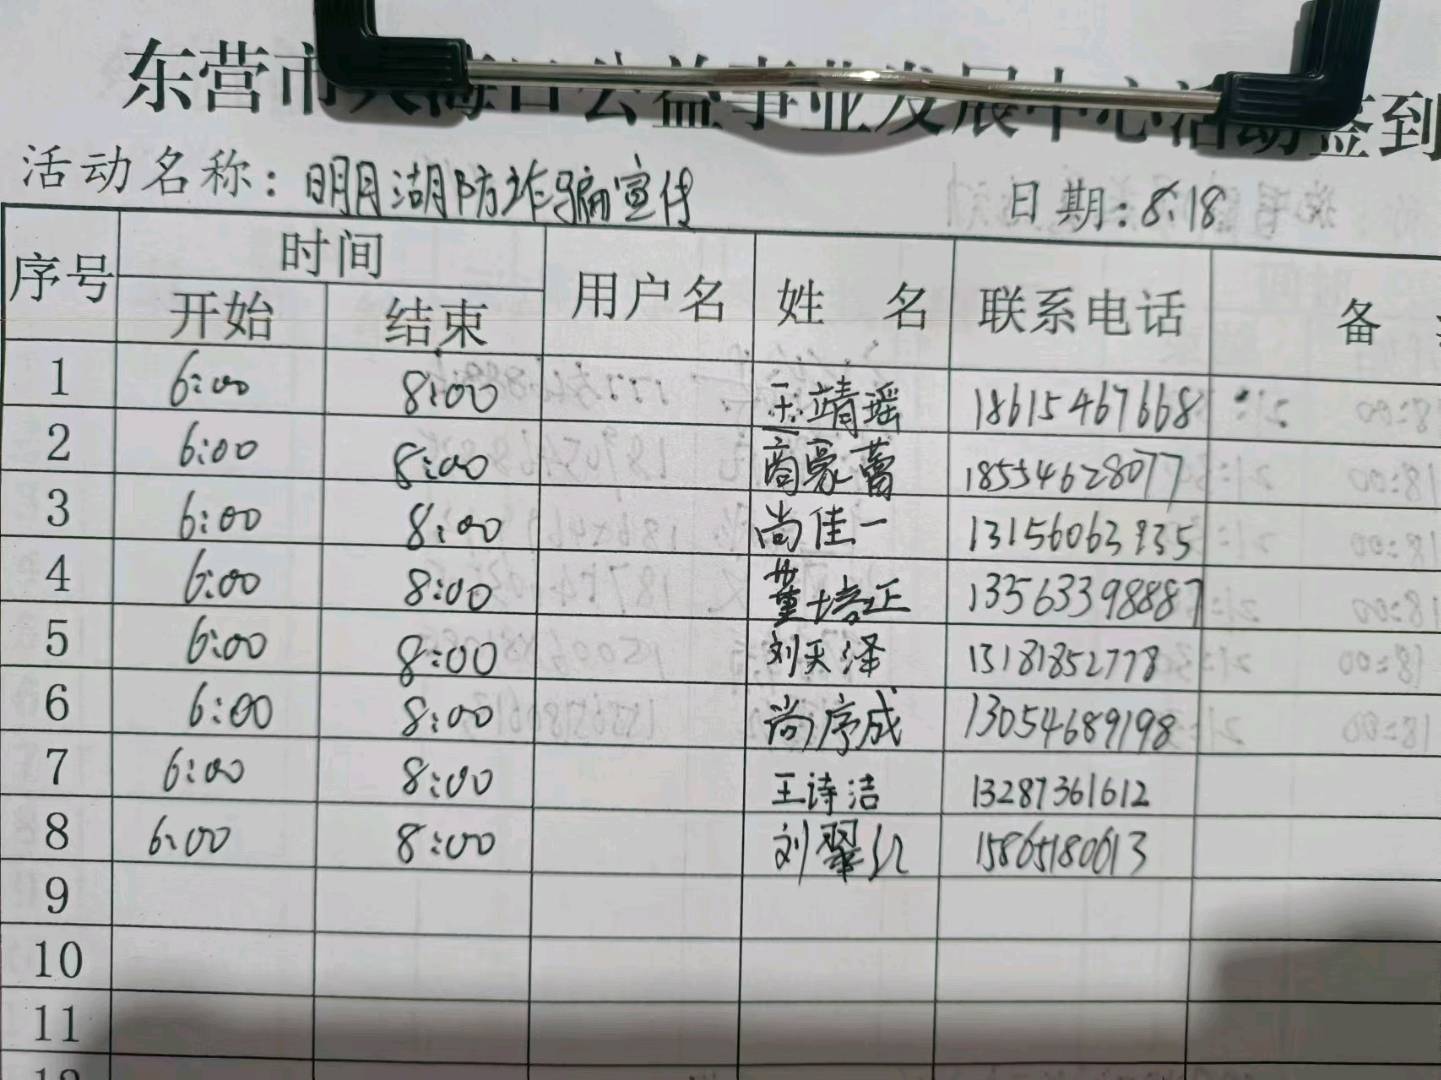 东营市 公益事业发展中心活动签到
活动名称：明月湖防诈骗宣传 日期：8.18
序号 时间 用户名 姓 名 联系电话 备
开始 结束
1 6:00 8:00 王靖瑶 18615467668
2 6:00 8:00 商豪蕾 18554628077
3 6:00 8:00 尚佳一 13156063935
4 6:00 8:00 董培正 13563398887
5 6:00 8:00 刘天泽 13181852778
6 6:00 8:00 尚序成 13054689198
7 6:00 8:00 王诗洁 13287361612
8 6:00 8:00 刘翠 15865180613
9
10
11